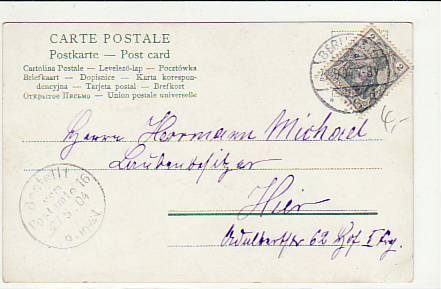 CARTE POSTALE
Postkarte — Post card
Cartolina Postale — Levelező-lap — Pocztówka
Briefkaart — Dopisnice — Karta korespon-
dencyjna — Tarjeta postal — Brefkort
Открытое Письмо — Union postale universelle
BERLIN
4,-
Herrn Hermann Michael
Laubenbesitzer
Hier
Adalbertstr 62 Hof I Trg.